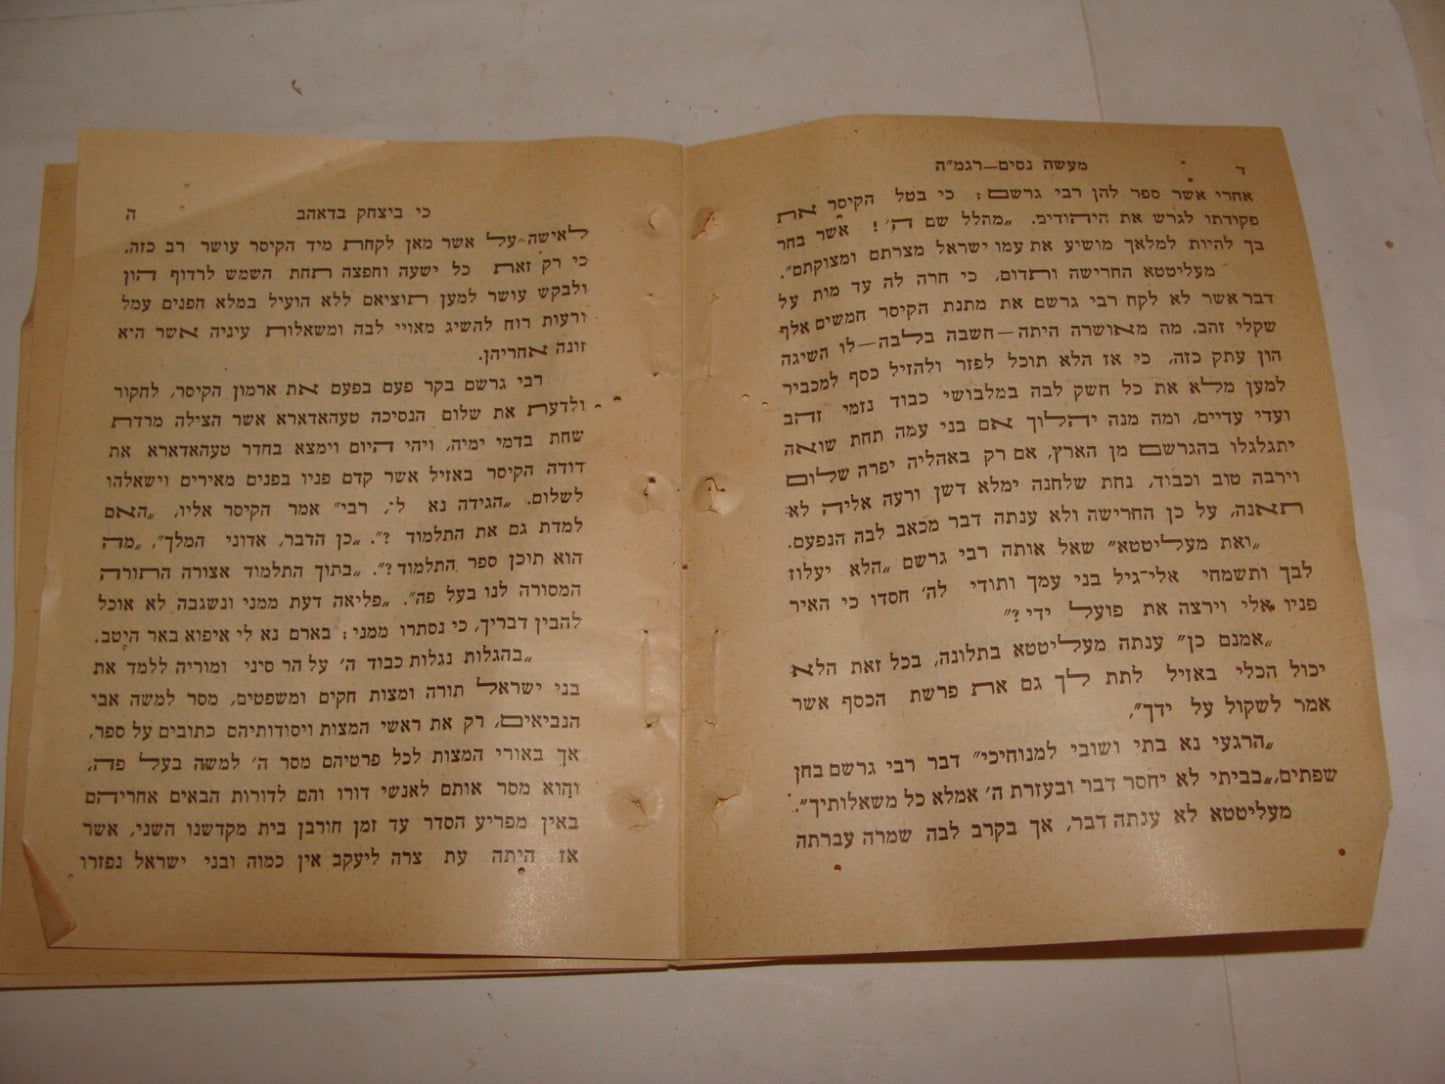 ד
מעשה נסים—רגמ״ה
אחרי אשר ספר להן רבי גרשם; כי בטל הקיסר את
פקודתו לגרש את היהודים. „מהלל שם ה׳! אשר בחר
בך להיות למלאך מושיע את עמו ישראל מצרתם ומצוקתם״.
מעליטטא החרישה ותדום, כי חרה לה עד מות על
דבר אשר לא לקח רבי גרשם את מתנת הקיסר חמשים אלף
שקלי זהב. מה מאושרה היתה—חשבה בלבה—לו השיגה
הון עתק כזה, כי אז הלא תוכל לפזר ולהזיל כסף למכביר
למען מלא את כל חשק לבה במלבושי כבוד נזמי זהב
ועדי עדיים, ומה מנה יהלוך אם בני עמה תחת שואה
יתגלגלו בהגרשם מן הארץ, אם רק באהליה יפרה שלום
וירבה טוב וכבוד, נחת שלחנה ימלא דשן ורעה אליה לא
תאנה, על כן החרישה ולא ענתה דבר מכאב לבה הנפעם.
„ואת מעליטטא״ שאל אותה רבי גרשם „הלא יעלוז
לבך ותשמחי אלי־גיל בני עמך ותודי לה׳ חסדו כי האיר
פניו אלי וירצה את פועל ידי?״
„אמנם כן״ ענתה מעליטטא בתלונה, בכל זאת הלא
יכול הכלי באזיל לתת לך גם את פרשת הכסף אשר
אמר לשקול על ידך״,
„הרגעי נא בתי ושובי למנוחיכי״ דבר רבי גרשם בחן
שפתים, „בביתי לא יחסר דבר ובעזרת ה׳ אמלא כל משאלותיך״.
מעליטטא לא ענתה דבר, אך בקרב לבה שמרה עברתה
כי ביצחק בדאהב
ה
לאישה־על אשר מאן לקחת מיד הקיסר עושר רב כזה,
כי רק זאת כל ישעה וחפצה תחת השמש לרדוף הון
ולבקש עושר למען תוציאם ללא הועיל במלא חפנים עמל
ורעות רוח להשיג מאויי לבה ומשאלות עיניה אשר היא
זונה אחריהן.
רבי גרשם בקר פעם בפעם את ארמון הקיסר, לחקור
ולדעת את שלום הנסיכה טעהאדארא אשר הצילה מרדת
שחת בדמי ימיה, ויהי היום וימצא בחדר טעהאדארא את
דודה הקיסר באזיל אשר קדם פניו בפנים מאירים וישאלהו
לשלום. „הגידה נא לי, רבי״ אמר הקיסר אליו, „האם
למדת גם את התלמוד ?״. „כן הדבר, אדוני המלך״, „מה
הוא תוכן ספר התלמוד?״. „בתוך התלמוד אצורה התורה
המסורה לנו בעל פה״. „פליאה דעת ממני ונשגבה לא אוכל
להבין דבריך, כי נסתרו ממני; בארם נא לי איפוא באר היטב.
„בהגלות נגלות כבוד ה׳ על הר סיני ומוריה ללמד את
בני ישראל תורה ומצות חקים ומשפטים, מסר למשה אבי
הנביאים, רק את ראשי המצות ויסודותיהם כתובים על ספר,
אך באורי המצות לכל פרטיהם מסר ה׳ למשה בעל פה,
והוא מסר אותם לאנשי דורו והם לדורות הבאים אחריהם
באין מפריע הסדר עד זמן חורבן בית מקדשנו השני, אשר
אז היתה עת צרה ליעקב אין כמוה ובני ישראל נפזרו